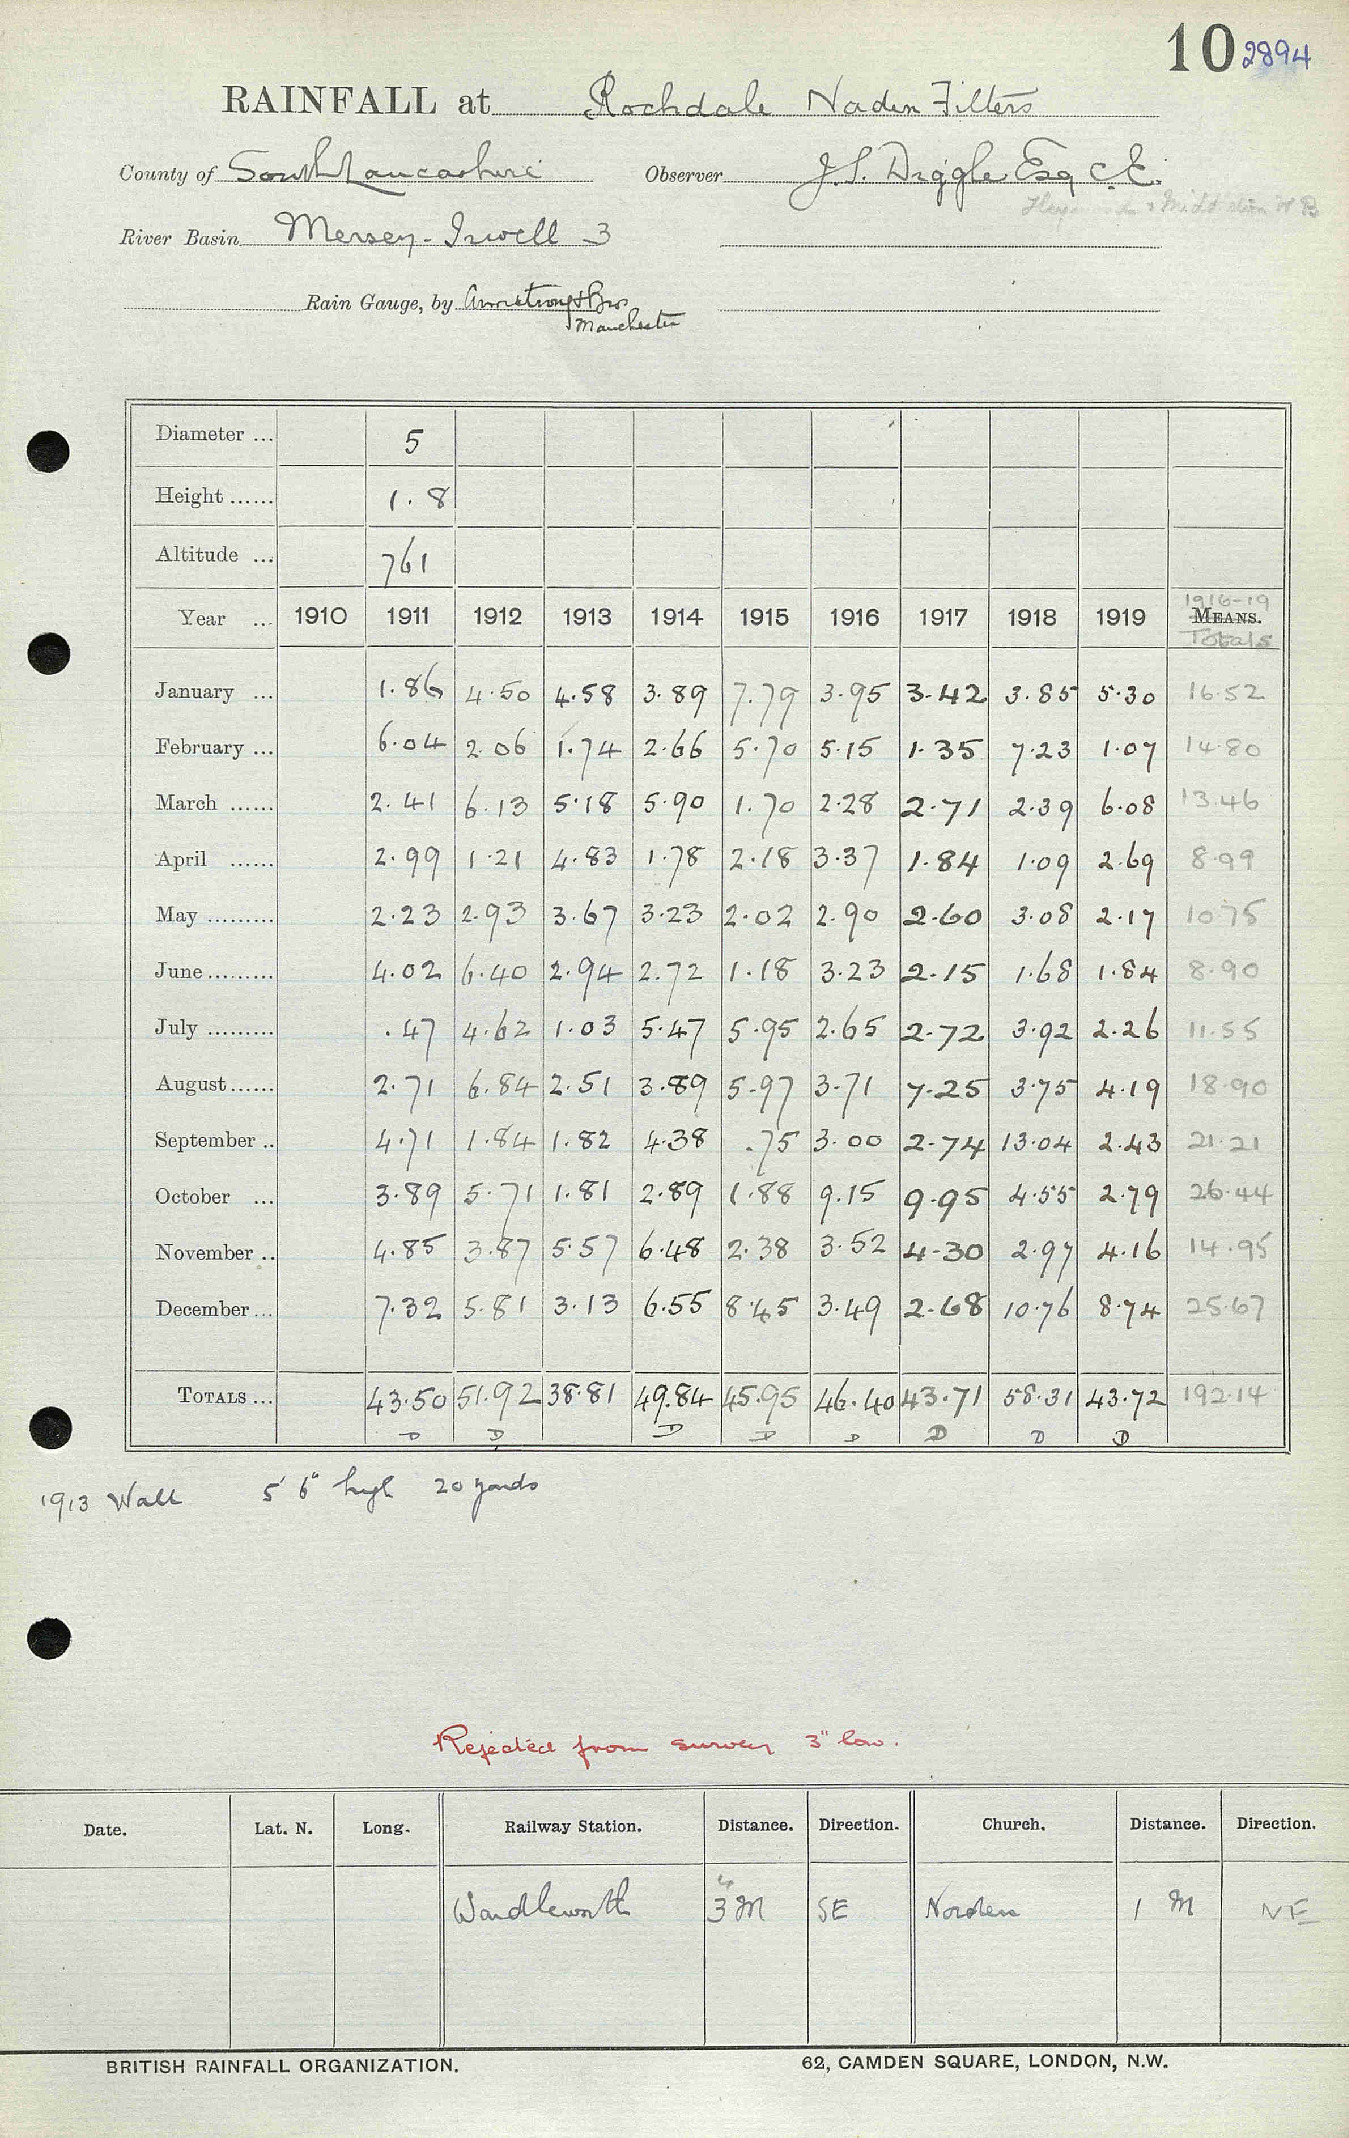 10 2894
RAINFALL at Rochdale Naden Filters
County of South Lancashire Observer J.S. Diggle Esq C.E.
River Basin Mersey - Irwell 3
Rain Gauge, by Armstrong & Bros
Manchester
Diameter ... 5
Height ...... 1.8
Altitude ... 761
1916-19
Year ... 1910 1911 1912 1913 1914 1915 1916 1917 1918 1919 MEANS.
Totals
January ... 1.86 4.50 4.58 3.89 7.79 3.95 3.42 3.85 5.30 16.52
February ... 6.04 2.06 1.74 2.66 5.70 5.15 1.35 7.23 1.07 14.80
March ...... 2.41 6.13 5.18 5.90 1.70 2.28 2.71 2.39 6.08 13.46
April ...... 2.99 1.21 4.83 1.78 2.18 3.37 1.84 1.09 2.69 8.99
May ......... 2.23 2.93 3.67 3.23 2.02 2.90 2.60 3.08 2.17 10.75
June ......... 4.02 6.40 2.94 2.72 1.18 3.23 2.15 1.68 1.84 8.90
July ......... .47 4.62 1.03 5.47 5.95 2.65 2.72 3.92 2.26 11.55
August ...... 2.71 6.84 2.51 3.89 5.97 3.71 7.25 3.75 4.19 18.90
September .. 4.71 1.84 1.82 4.38 .75 3.00 2.74 13.04 2.43 21.21
October ... 3.89 5.71 1.81 2.89 1.88 9.15 9.95 4.55 2.79 26.44
November .. 4.85 3.87 5.57 6.48 2.38 3.52 4.30 2.97 4.16 14.95
December ... 7.32 5.81 3.13 6.55 8.45 3.49 2.68 10.76 8.74 25.67
TOTALS ... 43.50 51.92 38.81 49.84 45.95 46.40 43.71 58.31 43.72 192.14
D D D D D D D D
1913 Wall 5' 6" high 20 yards
Rejected from survey 3" low.
Date. Lat. N. Long. Railway Station. Distance. Direction. Church. Distance. Direction.
Wardleworth 3 M SE Norden 1 M NE
BRITISH RAINFALL ORGANIZATION. 62, CAMDEN SQUARE, LONDON, N.W.